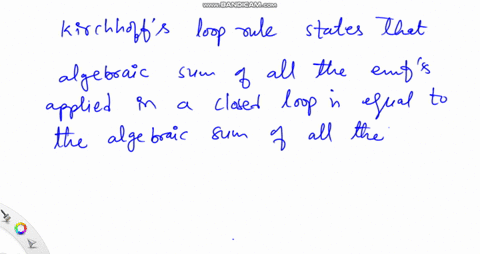 www.BANDICAM.com
Kirchhoff's loop rule states that
algebraic sum of all the emf's
applied in a closed loop is equal to
the algebraic sum of all the